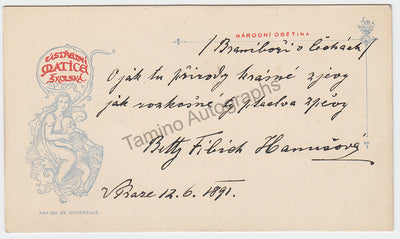 ÚSTŘEDNÍ
MATICE
ŠKOLSKÁ
NÁRODNÍ OBĚTINA
/Braniboři v Čechách/
O jak tu přírody krasné zjevy
jak rozkošné ty ptactva zpěvy
Betty Fibich Hanušová
V Praze 12. 6. 1891.
PATISK SE VYHRAZUJE
Tamino Autographs